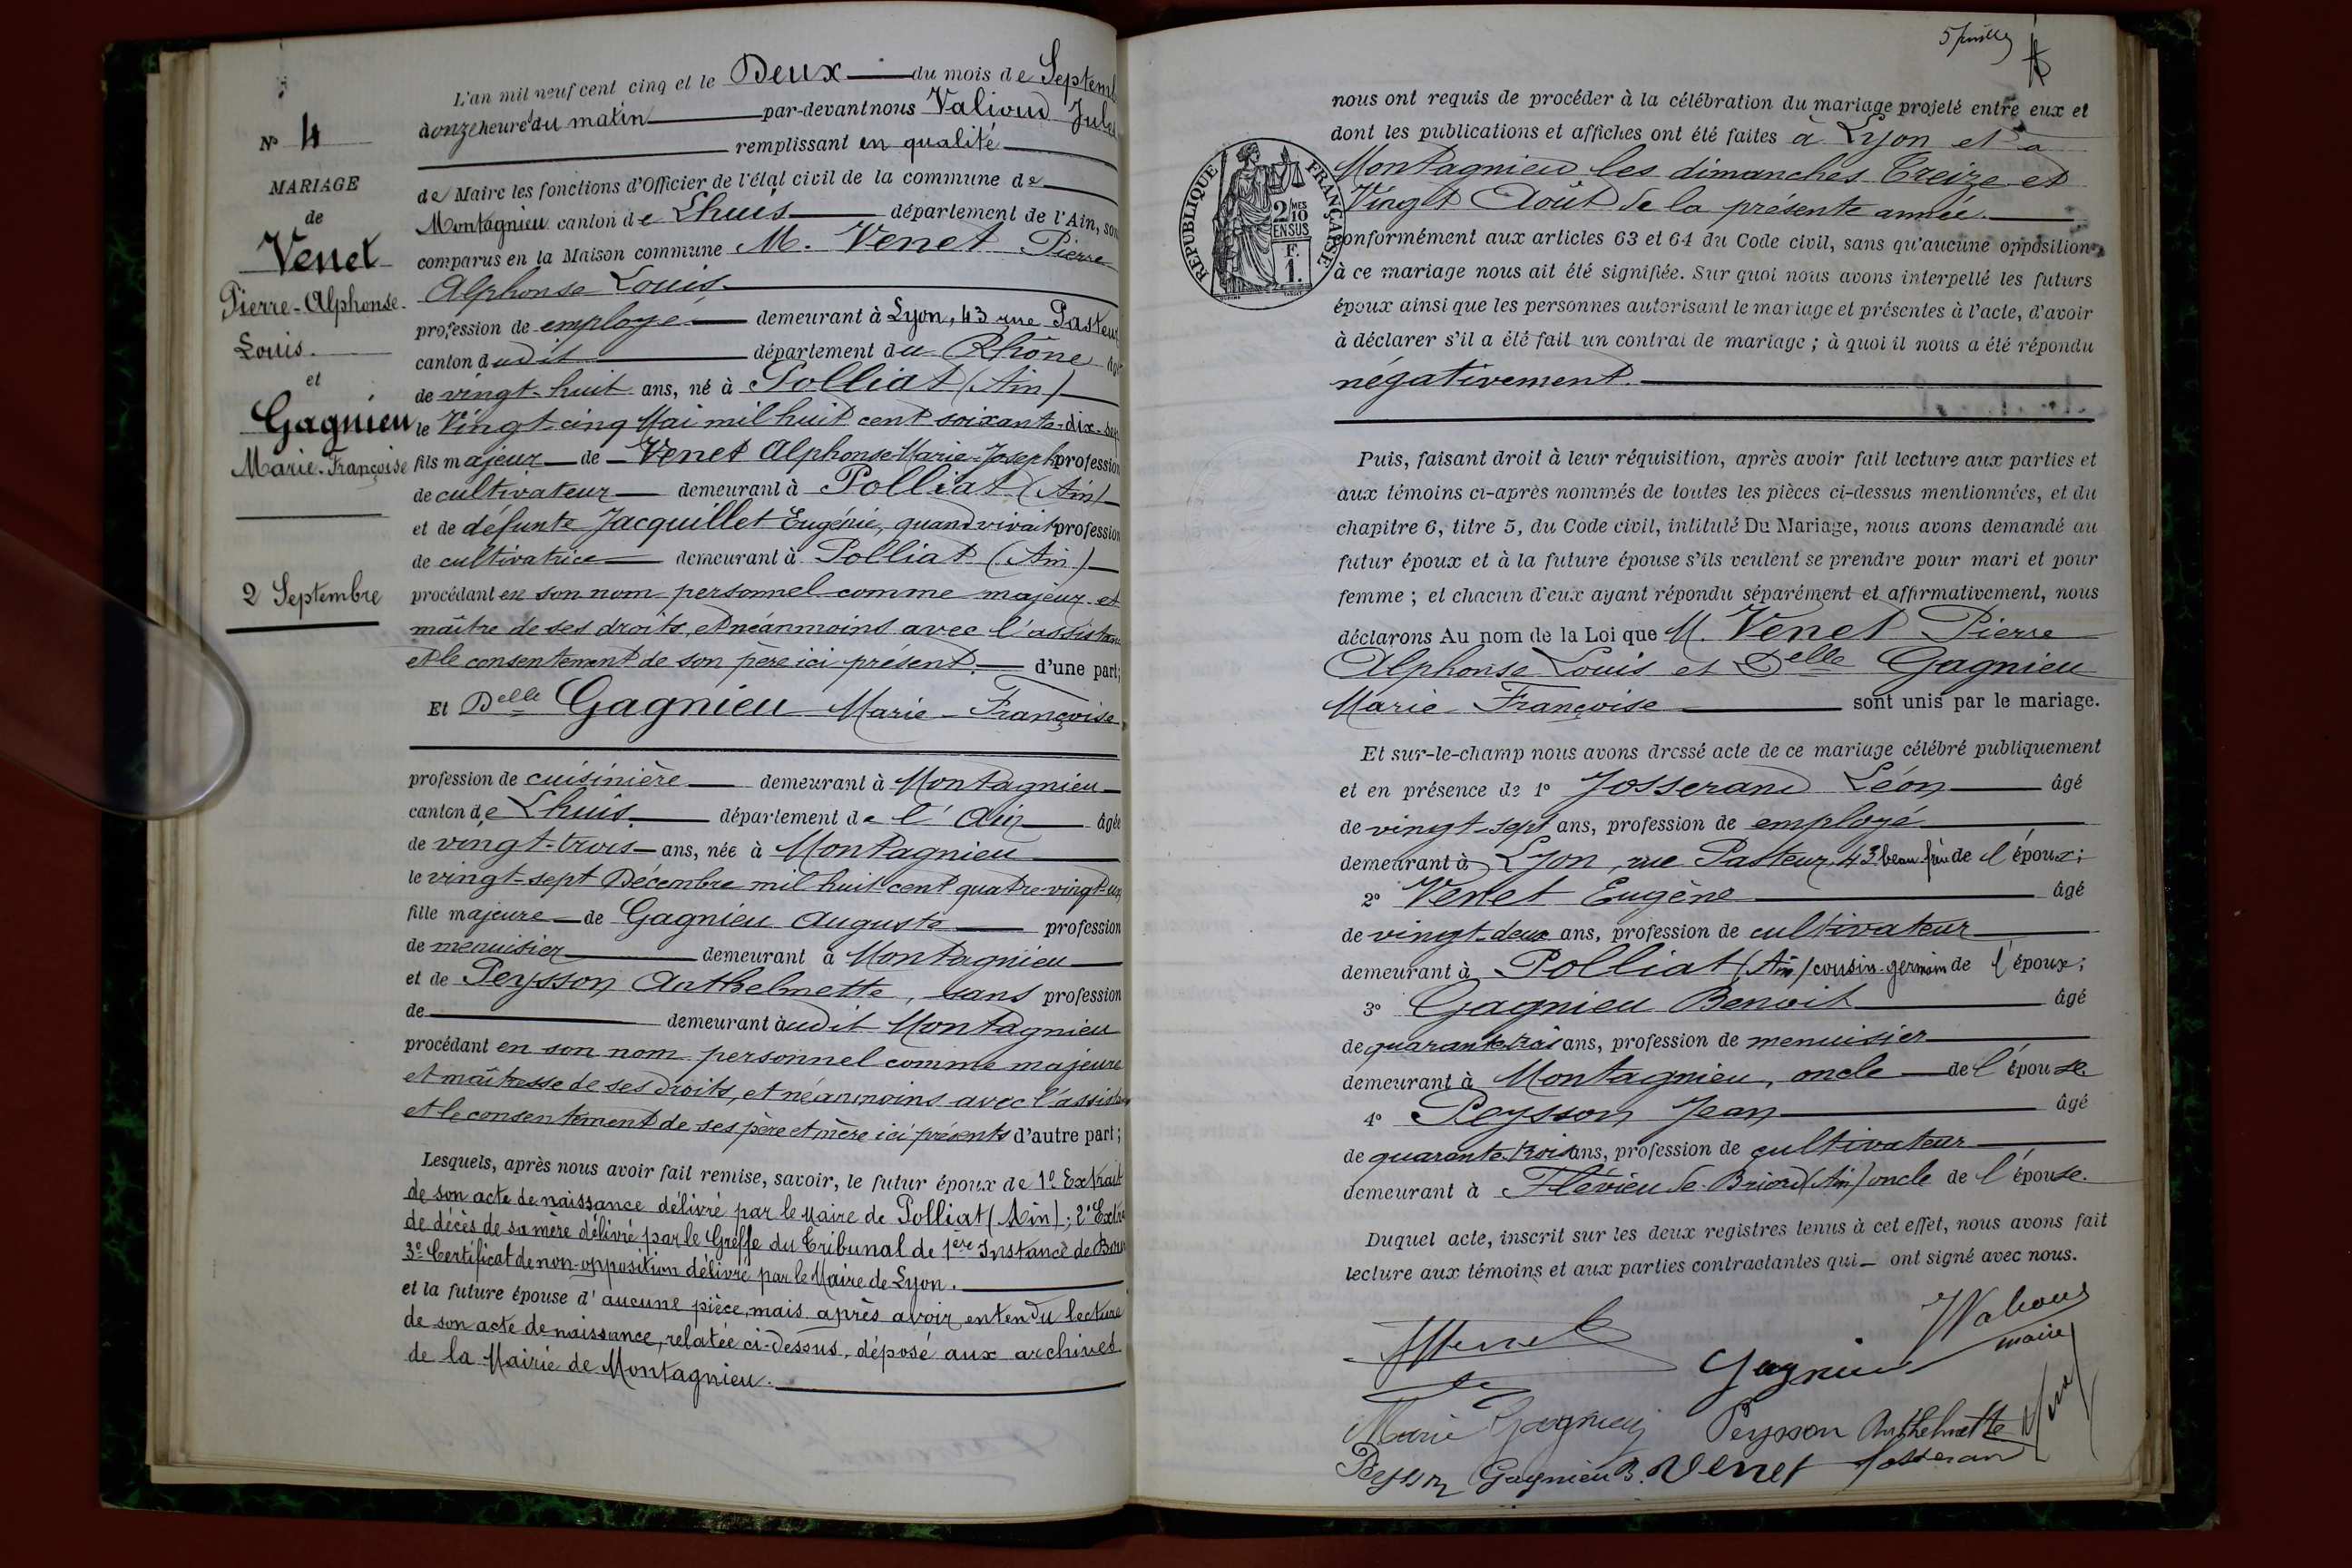 L'an mil neuf cent cinq et le Deux du mois de Septemb
à onze heure du matin par-devant nous Valioud Jules
remplissant en qualité
de Maire les fonctions d'Officier de l'état civil de la commune de
Montagnieu canton de Lhuis département de l'Ain, sont
comparus en la Maison commune M. Venet Pierre
Alphonse Louis.
profession de employé demeurant à Lyon, 43 rue Pasteur
canton dudit département du Rhône âgé
de vingt-huit ans, né à Polliat (Ain)
le Vingt-cinq Mai mil huit cent soixante-dix-sep
fils majeur de Venet Alphonse Marie-Joseph profession
de cultivateur demeurant à Polliat (Ain)
et de défunte Jacquillet Eugénie, quand vivait profession
de cultivatrice demeurant à Polliat (Ain)
procédant en son nom personnel comme majeur et
maître de ses droits, et néanmoins avec l'assistan
et le consentement de son père ici présent. d'une part;
Et Delle Gagnieu Marie-Françoise
profession de cuisinière demeurant à Montagnieu
canton de Lhuis. département de l'Ain âgée
de vingt-trois ans, née à Montagnieu
le vingt-sept Décembre mil huit cent quatre-vingt-un
fille majeure de Gagnieu Auguste profession
de menuisier demeurant à Montagnieu
et de Peysson Anthelmette, sans profession
de demeurant audit Montagnieu
procédant en son nom personnel comme majeure
et maîtresse de ses droits, et néanmoins avec l'assistan
et le consentement de ses père et mère ici présents d'autre part;
Lesquels, après nous avoir fait remise, savoir, le futur époux de 1º Extrait
de son acte de naissance délivré par le Maire de Polliat (Ain); 2º Extra
de décès de sa mère délivré par le Greffe du Tribunal de 1ère Instance de Bour
3º Certificat de non-opposition délivré par le Maire de Lyon.
et la future épouse d'aucune pièce, mais après avoir entendu lecture
de son acte de naissance, relatée ci-dessus, déposé aux archives
de la Mairie de Montagnieu.
Nº 4
MARIAGE
de
Venet
Pierre-Alphonse-
Louis.
et
Gagnieu
Marie-Françoise
2 Septembre
nous ont requis de procéder à la célébration du mariage projeté entre eux et
dont les publications et affiches ont été faites à Lyon et à
Montagnieu les dimanches Treize et
Vingt Août de la présente année.
conformément aux articles 63 et 64 du Code civil, sans qu'aucune opposition
à ce mariage nous ait été signifiée. Sur quoi nous avons interpellé les futurs
époux ainsi que les personnes autorisant le mariage et présentes à l'acte, d'avoir
à déclarer s'il a été fait un contrat de mariage; à quoi il nous a été répondu
négativement.
RÉPUBLIQUE FRANÇAISE
2/10 MES
EN SUS
F.
1.
Puis, faisant droit à leur réquisition, après avoir fait lecture aux parties et
aux témoins ci-après nommés de toutes les pièces ci-dessus mentionnées, et du
chapitre 6, titre 5, du Code civil, intitulé Du Mariage, nous avons demandé au
futur époux et à la future épouse s'ils veulent se prendre pour mari et pour
femme; et chacun d'eux ayant répondu séparément et affirmativement, nous
déclarons Au nom de la Loi que M. Venet Pierre
Alphonse Louis et Delle Gagnieu
Marie Françoise sont unis par le mariage.
Et sur-le-champ nous avons dressé acte de ce mariage célébré publiquement
et en présence de 1º Josserand Léon âgé
de vingt-sept ans, profession de employé
demeurant à Lyon, rue Pasteur, 43 beau-frère de l'époux;
2º Venet Eugène âgé
de vingt-deux ans, profession de cultivateur
demeurant à Polliat (Ain) cousin-germain de l'époux;
3º Gagnieu Benoit âgé
de quarante-trois ans, profession de menuisier
demeurant à Montagnieu, oncle de l'épouse
4º Peysson Jean âgé
de quarante-trois ans, profession de cultivateur
demeurant à Flévieu de Briord (Ain) oncle de l'épouse.
Duquel acte, inscrit sur les deux registres tenus à cet effet, nous avons fait
lecture aux témoins et aux parties contractantes qui ont signé avec nous.
Venet
JValioud
maire
Gagnieu
Marie Gagnieu
Peysson Anthelmette
Peysson Gagnieu B. Venet Josserand